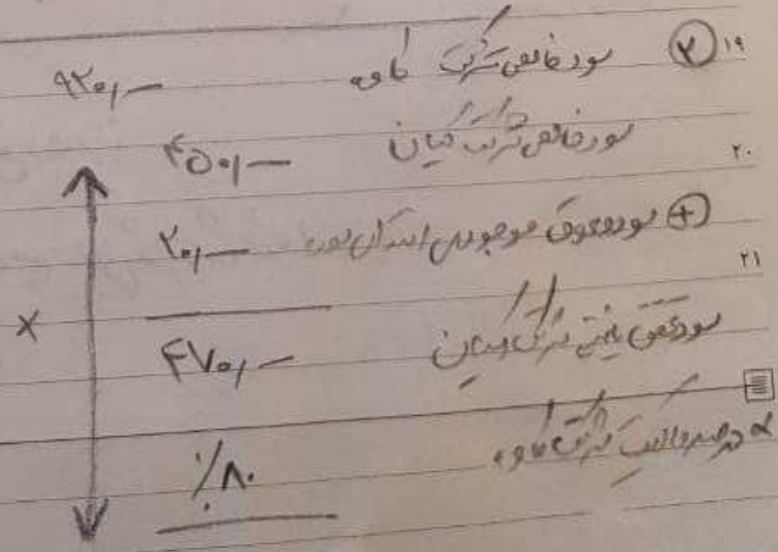 ۱۹ ② سود خالص شرکت کاوه ۹۲۰,—
۲۰ سود خالص شرکت کیان ۴۵۰,—
⊕ سود معوق موجودی ابتدای دوره ۲۰,—
۲۱
سود تحقق یافته شرکت کیان ۴۷۰,—
× درصد مالکیت شرکت کاوه ۸۰٪
×